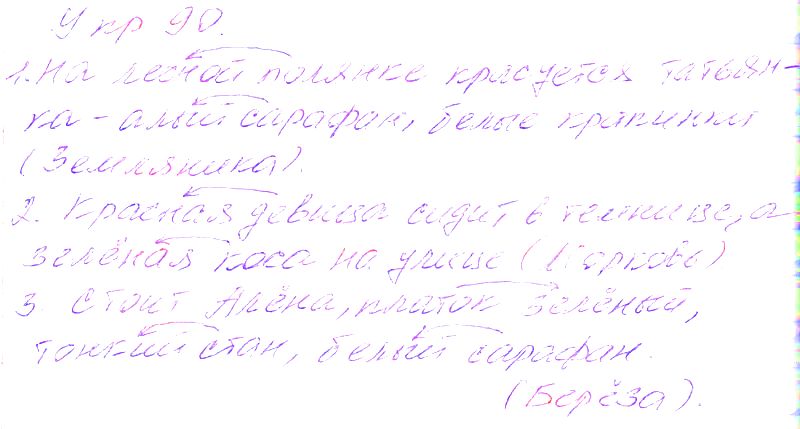 Упр 90.
1. На лесной полянке красуется Татьян-
ка - алый сарафан, белые крапинки
(Земляника).
2. Красная девица сидит в темнице, а
зелёная коса на улице (Морковь)
3. Стоит Алёна, платок зелёный,
тонкий стан, белый сарафан.
(Берёза).